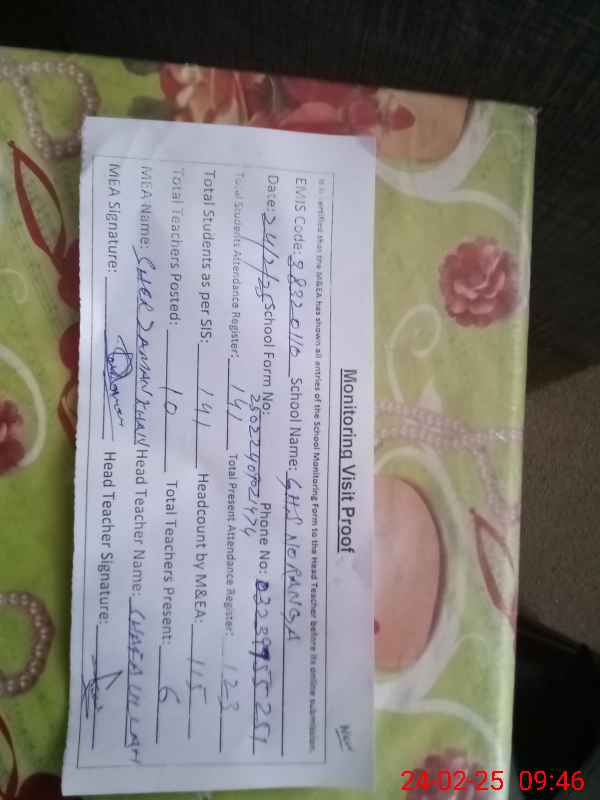 Monitoring Visit Proof
It is certified that the M&EA has shown all entries of the School Monitoring Form to the Head Teacher before its online submission.
EMIS Code: 38320110 School Name: GHS NORANGA
Date: 24/2/25 School Form No: Phone No: 03339955251
Total Students Attendance Register: 141 Total Present Attendance Register: 123
Total Students as per SIS: 141 Headcount by M&EA: 115
Total Teachers Posted: 10 Total Teachers Present: 6
MEA Name: SHER ZAMAN KHAN Head Teacher Name:
MEA Signature: Head Teacher Signature:
24-02-25 09:46